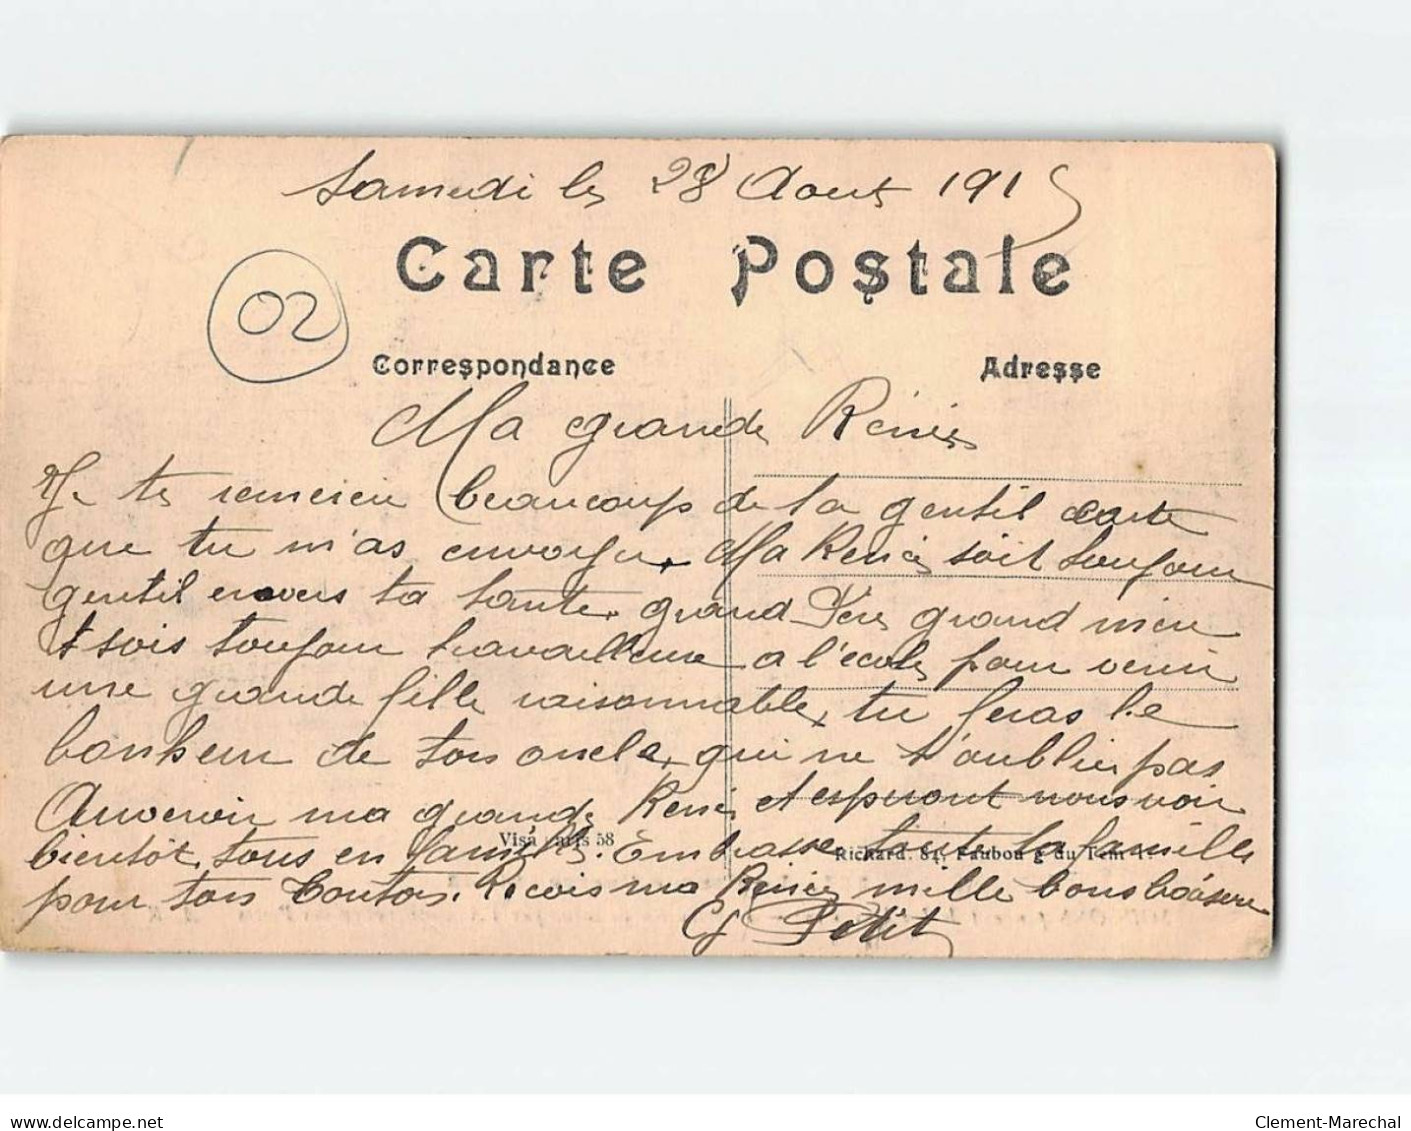 Samedi le 28 Aout 1915
Carte Postale
02
Correspondance
Adresse
Ma grande Rénée
Je te remercie beaucoup de la gentil carte
que tu m'as envoyer. Ma Renée soit toujour
gentil envers ta tante, grand Père grand mère
et sois toujour travailleuse a l'école pour venir
une grande fille raisonnable, tu feras le
bonheur de ton oncle, qui ne t'oublie pas
Auvevoir ma grande Renée et esperont nous voir
bientôt, tous en famille. Embrasse toute la famille
Visa Paris 58
Richard. 84, Faubou g du Tem
pour ton Tonton. Recois ma Renée mille bons baisers
G Petit
delcampe.net
Clement-Marechal